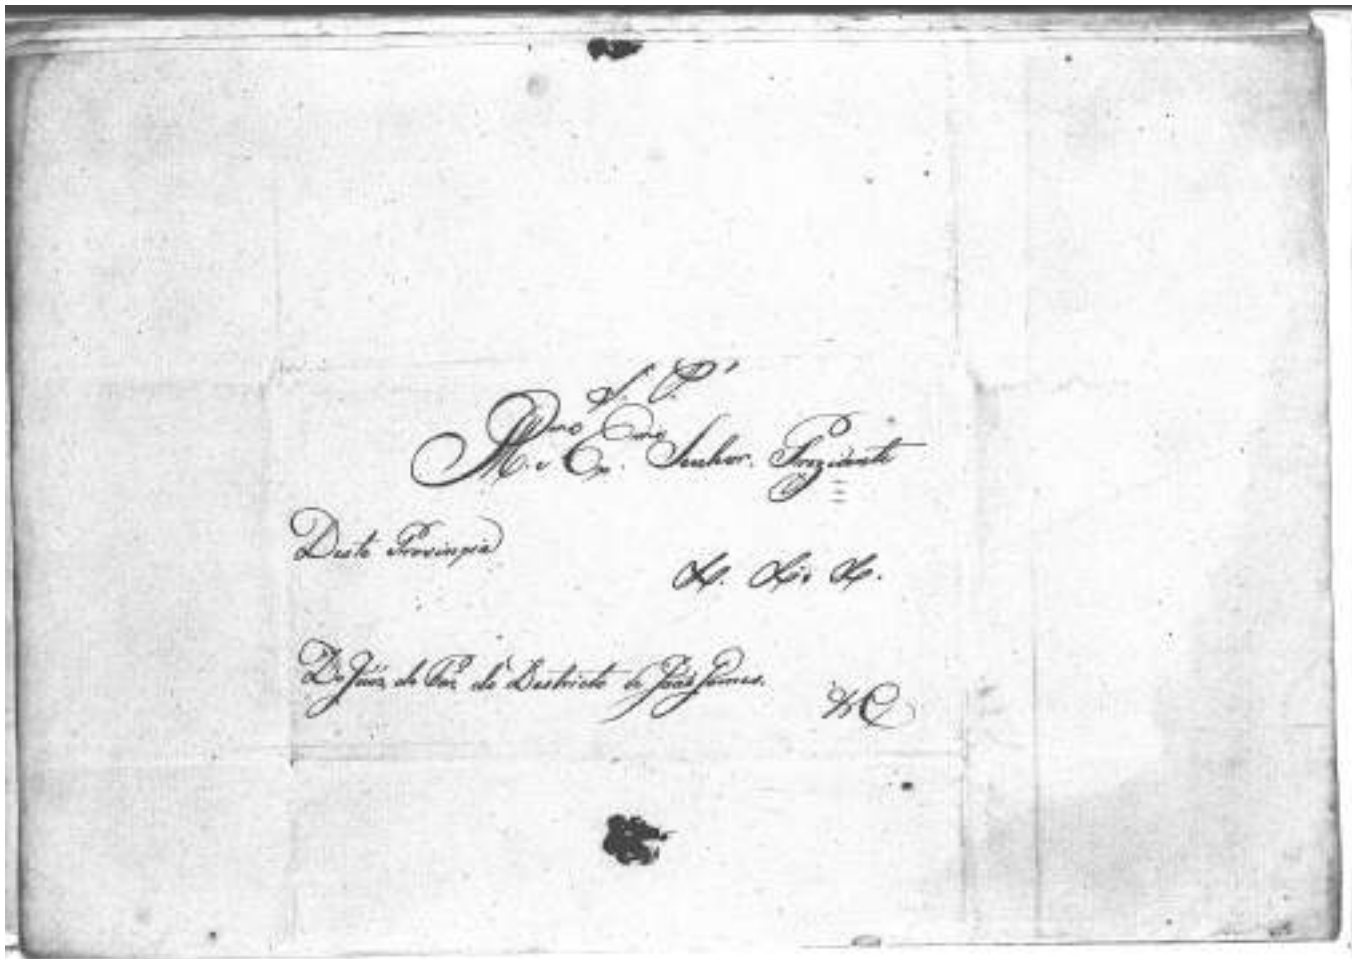 S. P.
Illmo. e Exmo. Senhor. Prezidente
Desta Provinpia
Do Juiz de Paz do Destricto de João Gomes.